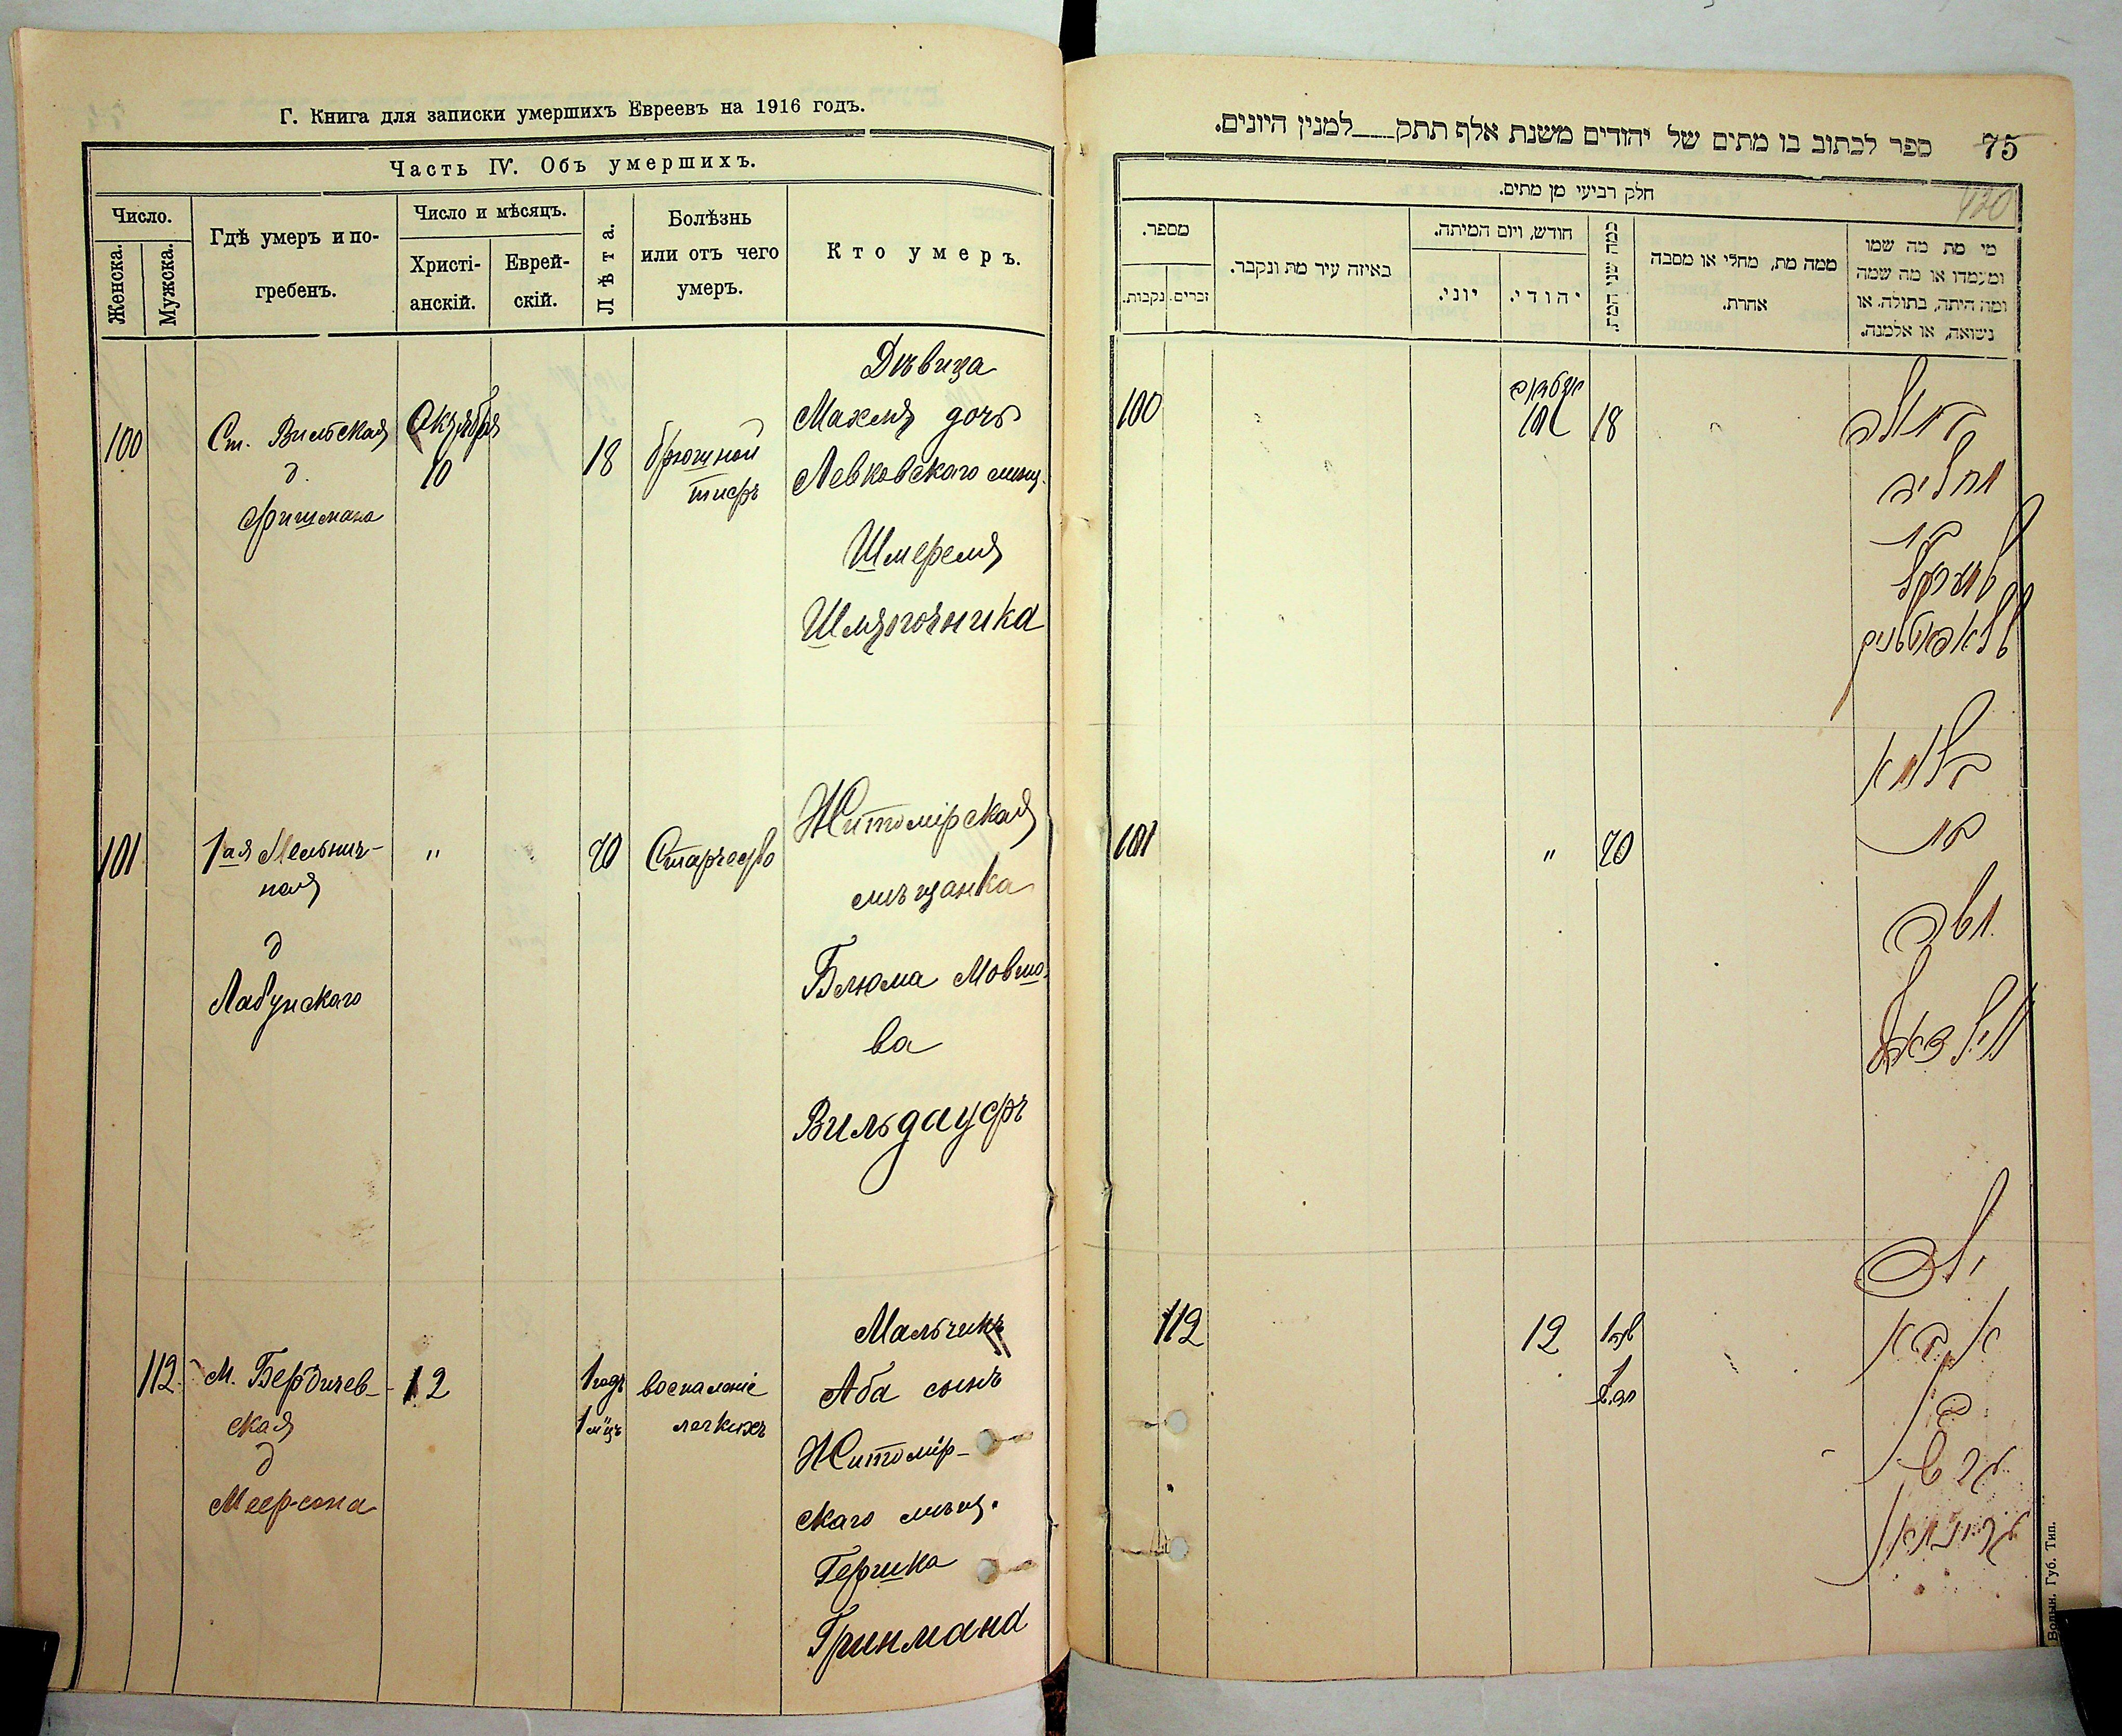 Г. Книга для записки умершихъ Евреевъ на 1916 годъ.
Часть IV. Объ умершихъ.
Число.
Женска.
Мужска.
Гдѣ умеръ и по-
гребенъ.
Число и мѣсяцъ.
Христі-
анскій.
Еврей-
скій.
Лѣта.
Болѣзнь
или отъ чего
умеръ.
Кто умеръ.
100
Ст. Вильская
д.
Фишмана
Октября
10
18
брюшной
тифъ
Дѣвица
Махля дочь
Левковского мѣщ.
Шмереля
101
1ая Мельнич-
ная
д
Лабунского
"
70
Старчество
Житомірская
мѣщанка
Блюма Мовшо-
ва
Вильдауфъ
112
М. Бердичев-
ская
д
Меерсона
12
1 годъ
1 м-цъ
воспаленіе
легкихъ
Мальчикъ
Аба сынъ
Житомір-
скаго мѣщ.
Гершка
Гринмана
75
ספר לכתוב בו מתים של יהודים משנת אלף תתק___למנין היונים.
420
חלק רביעי מן מתים.
מספר.
נקבות.
זכרים.
באיזה עיר מת ונקבר.
חודש, ויום המיתה.
יוני.
יהודי.
כמה שני המת.
ממה מת, מחלי או מסבה
אחרת.
מי מת מה שמו
ומעמדו או מה שמה
ומה היתה, בתולה, או
נשואה, או אלמנה.
100
18
בתולה
מחליה
בת
שמערל
101
"
70
בלומא
בת
משה
112
12
ילד
אבא
בן
הרש
גרינמאן
Волын. Губ. Тип.